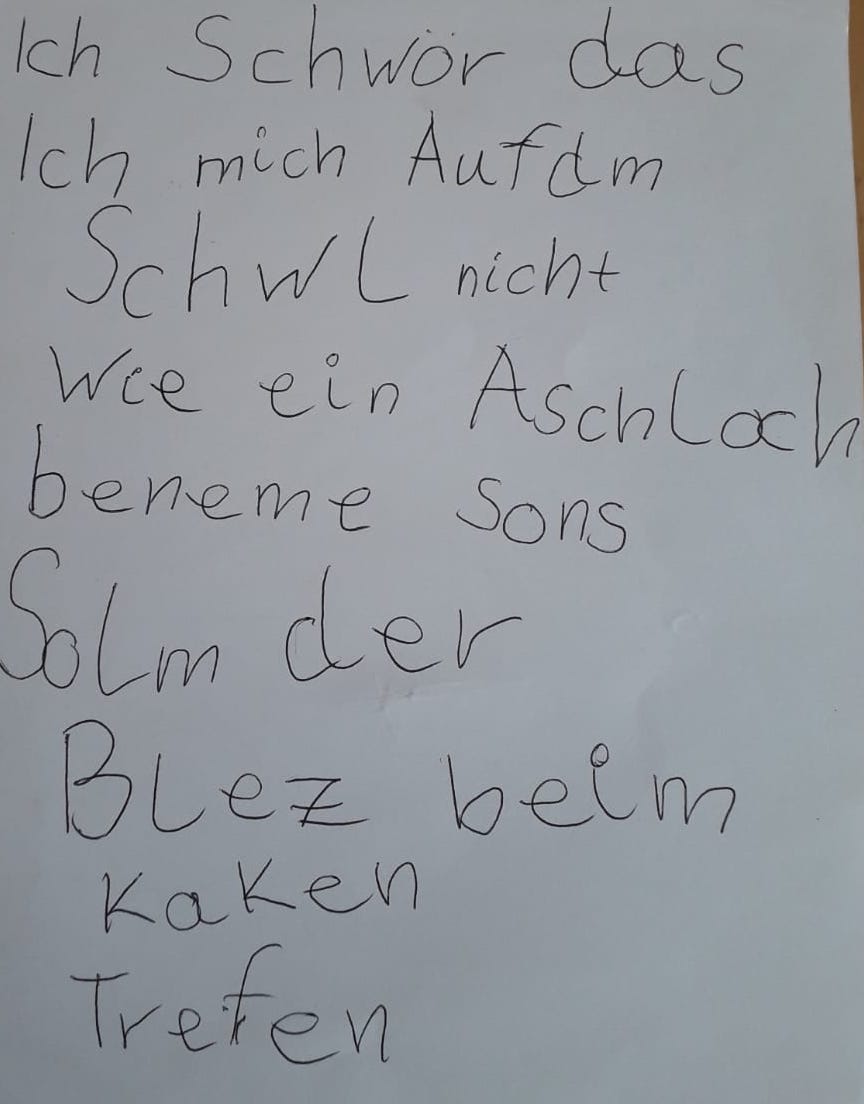 Ich Schwör das
Ich mich Aufdm
Schwl nicht
Wie ein Aschloch
beneme sons
Solm der
Blez beim
kaken
Trefen